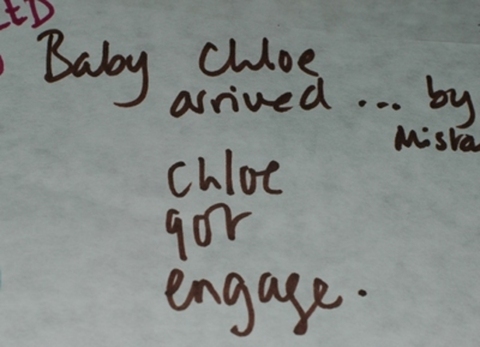 Baby Chloe
arrived ... by
Chloe
got
engage.